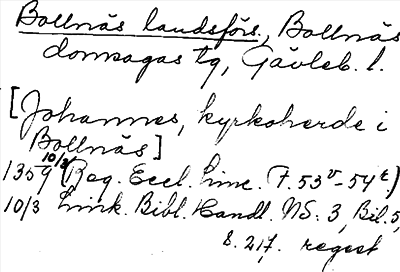 Bollnäs landsförs., Bollnäs
domsagas tg, Gävleb. l.
[Johannes, kyrkoherde i
Bollnäs]
1359 10/3 (Reg. Eccl. Linc. F. 53v-54r.)
10/3 Link. Bibl. Handl. NS. 3, Bil. 5,
s. 217. regest